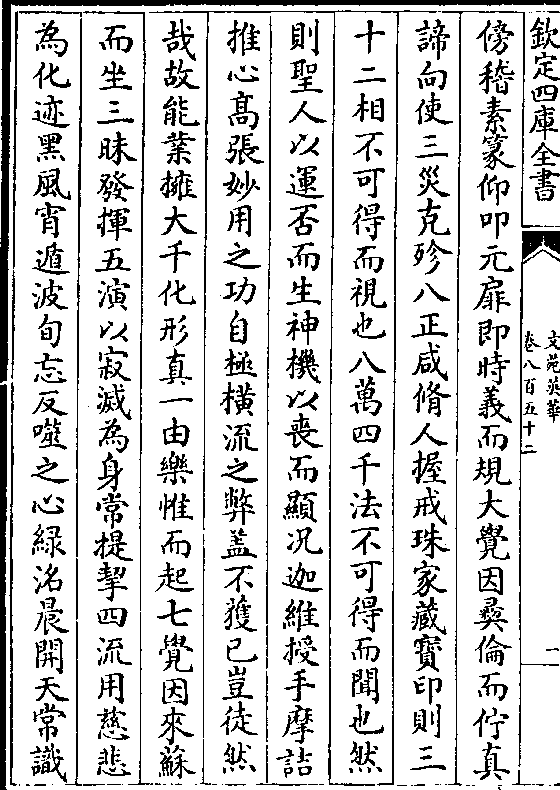 欽定四庫全書
文苑英華
卷八百五十二
一
傍稽素篆仰叩元扉即時義而規大覺因彛倫而佇真
諦向使三災克殄八正咸脩人握戒珠家藏寳印則三
十二相不可得而視也八萬四千法不可得而聞也然
則聖人以運否而生神機以喪而顯况迦維授手摩詰
推心髙張妙用之功自極横流之弊葢不獲已豈徒然
哉故能業擁大千化形真一由樂惟而起七覺因來蘇
而坐三昧發揮五演以寂滅為身常提挈四流用慈悲
為化迹黑風宵遁波旬忘反噬之心緑洺晨開天常識